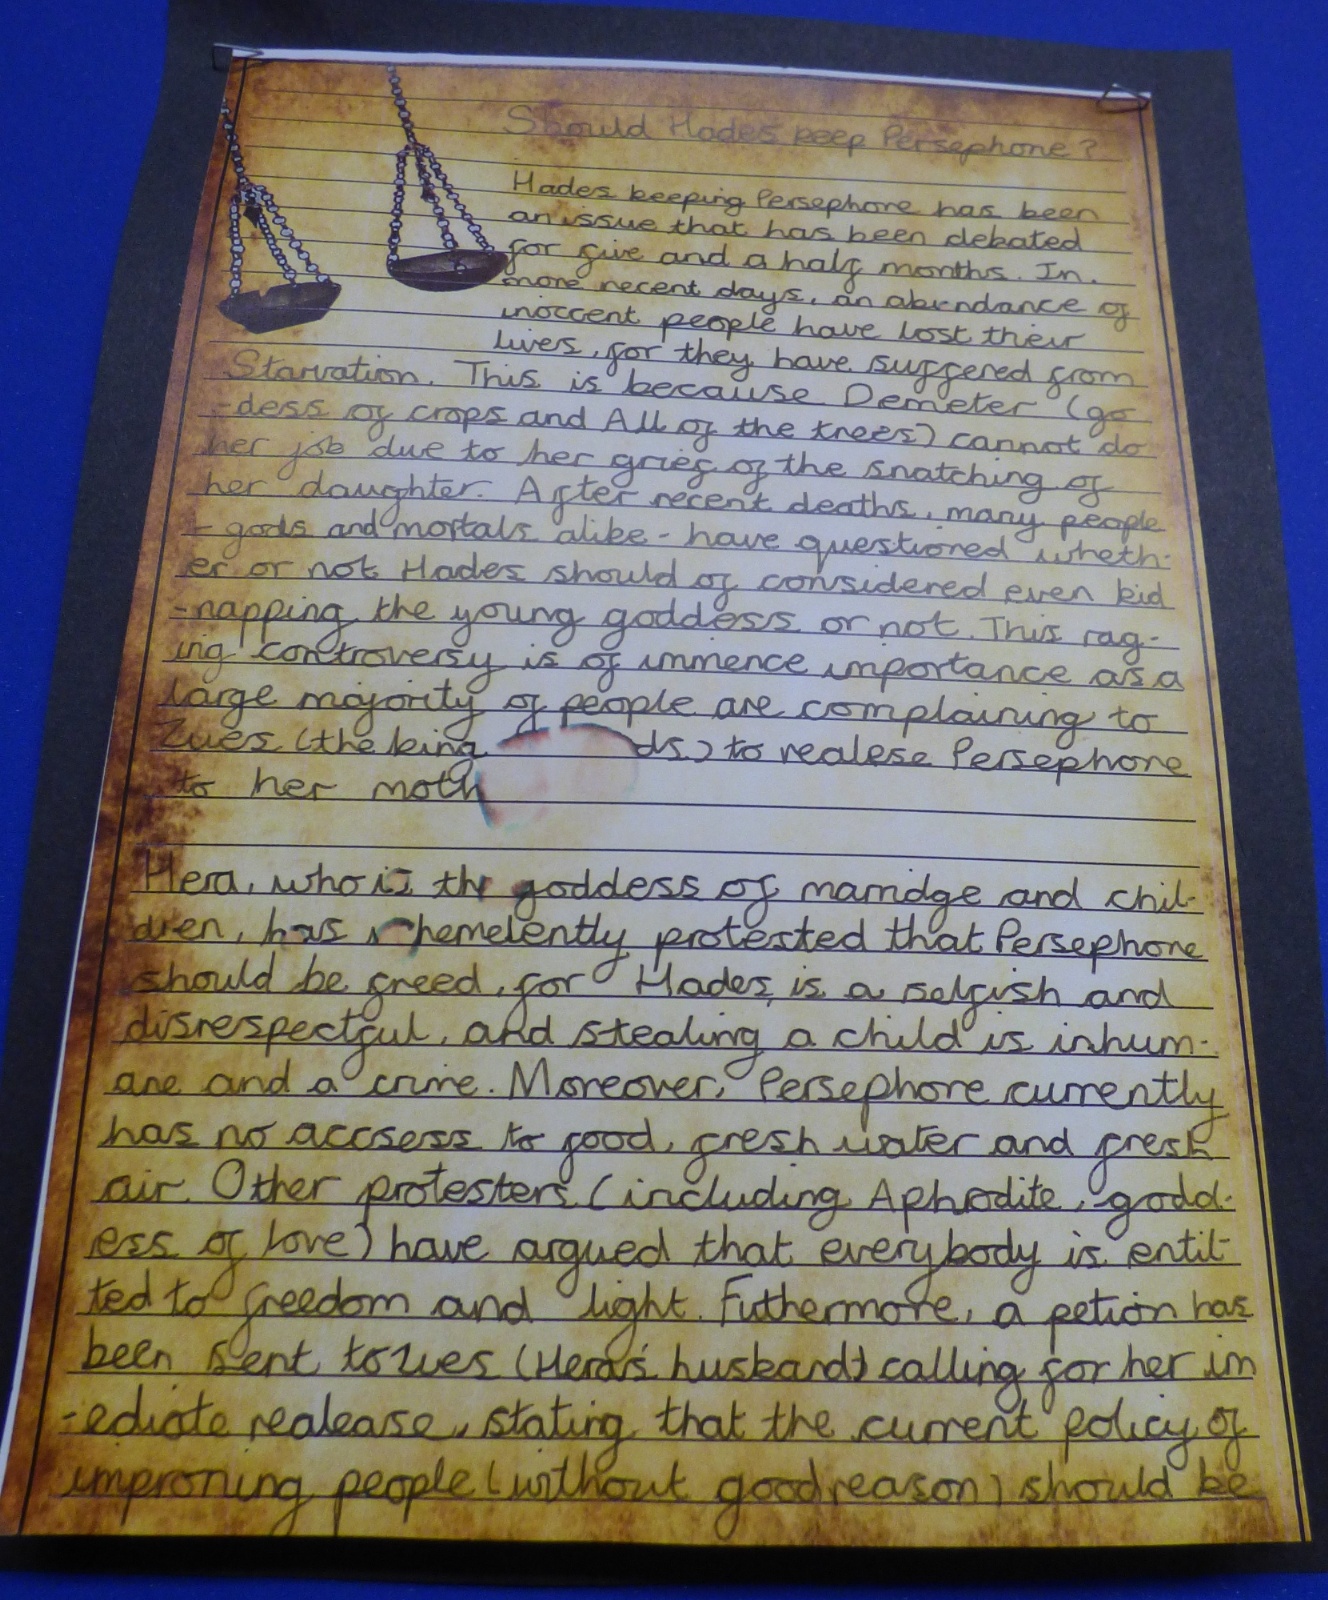 Should Hades keep Persephone?
Hades keeping Persephone has been
an issue that has been debated
for five and a half months. In
more recent days, an abundance of
inoccent people have lost their
lives, for they have suffered from
Starvation. This is because Demeter (go
-dess of crops and All of the trees) cannot do
her job due to her grief of the snatching of
her daughter. After recent deaths, many people
- gods and mortals alike - have questioned wheth-
er or not Hades should of considered even kid
-napping the young goddess or not. This rag-
ing controversy is of immence importance as a
large majority of people are complaining to
Zues (the king ds) to realese Persephone
to her moth
Hera, who is the goddess of marridge and chil-
dren, has hemelently protested that Persephone
should be freed, for Hades, is a selfish and
disrespectful, and stealing a child is inhum-
ane and a crime. Moreover, Persephone currently
has no accsess to food, fresh water and fresh
air. Other protesters (including Aphrodite, godd-
ess of love) have argued that everybody is entit-
ted to freedom and light. Futhermore, a petion has
been sent to zues (Hera's husband) calling for her im
-ediate realease, stating that the current policy of
improning people (without good reason) should be